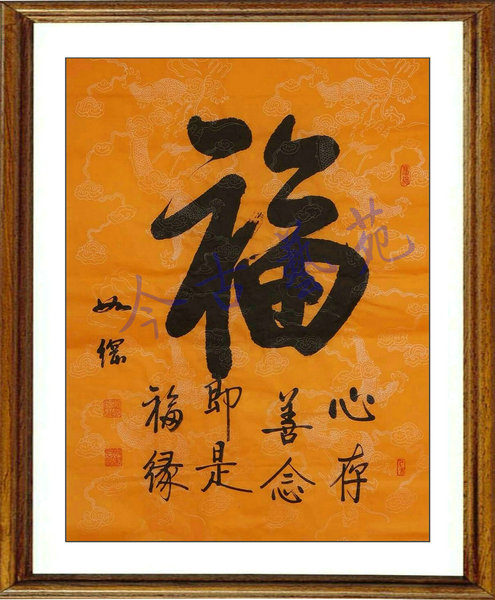 福
心存
善念
即是
福缘
今古苑